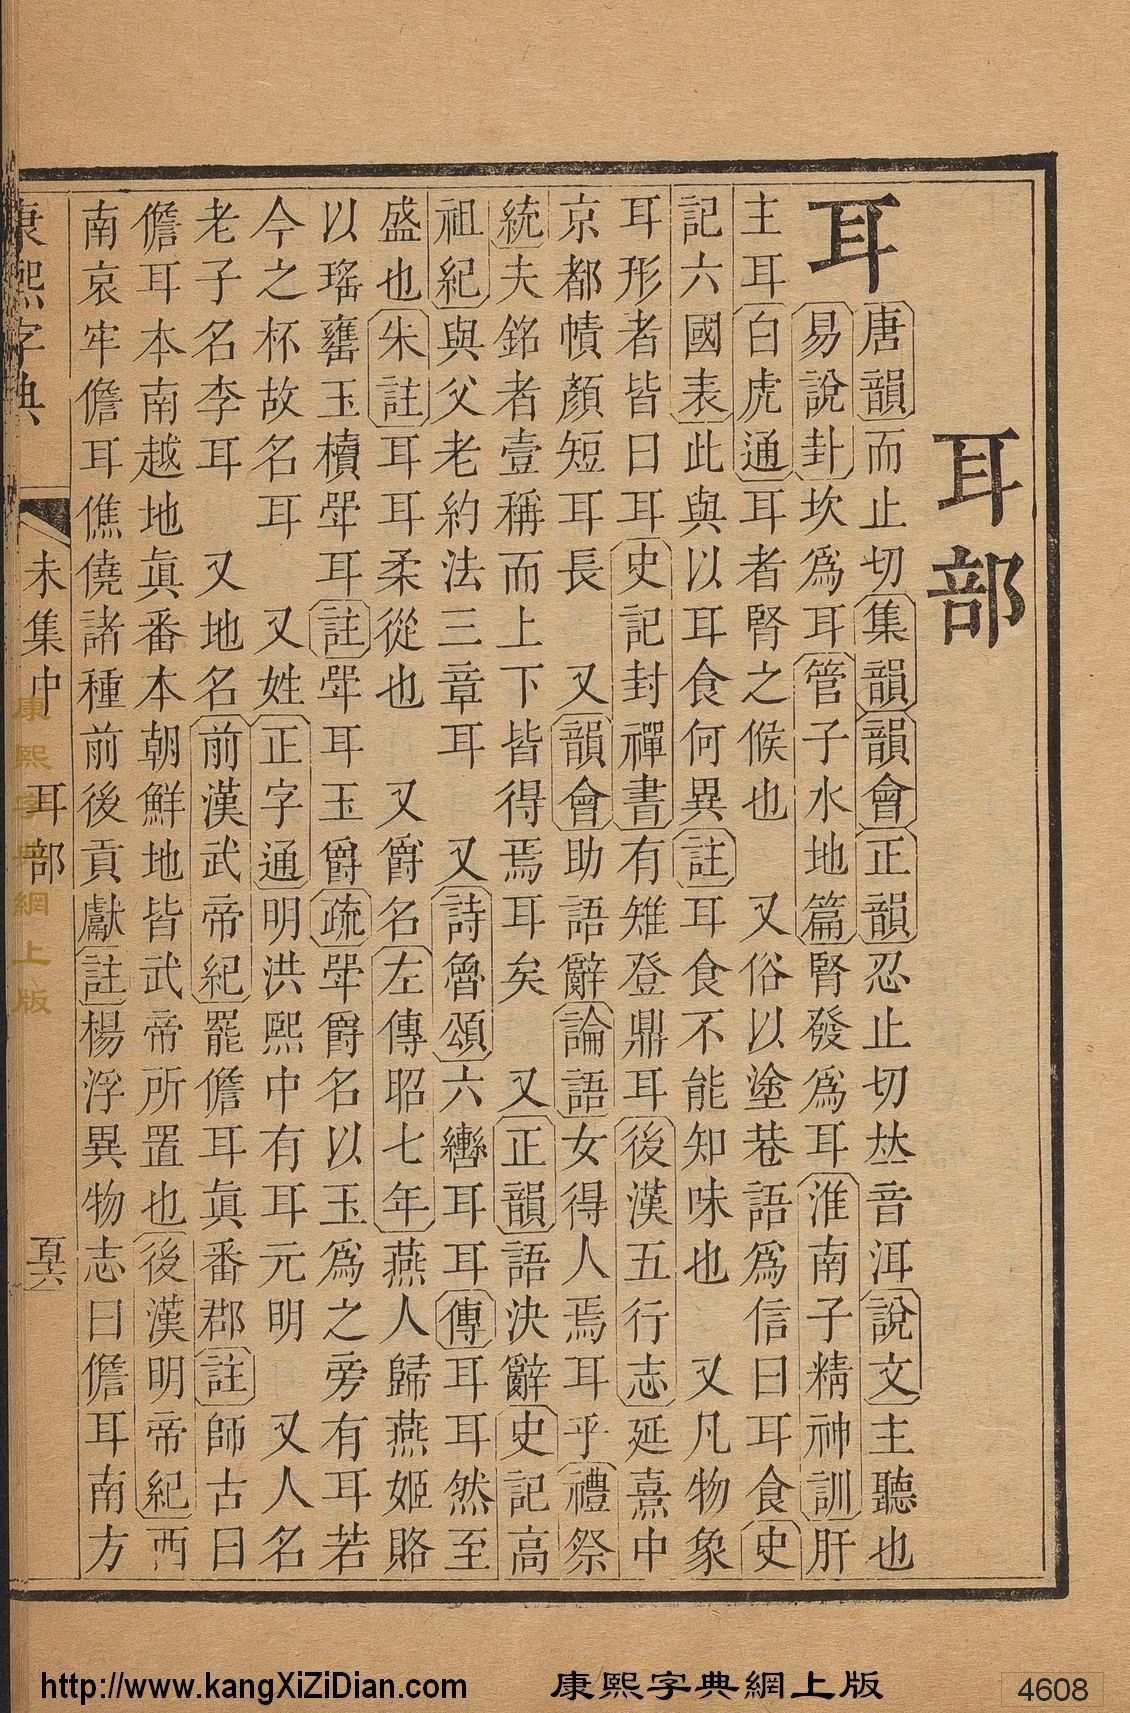 耳部
耳
唐韻而止切集韻韻會正韻忍止切𠀤音洱說文主聽也
易說卦坎爲耳管子水地篇腎發爲耳淮南子精神訓肝
主耳白虎通耳者腎之候也 又俗以塗巷語爲信曰耳食史
記六國表此與以耳食何異註耳食不能知味也 又凡物象
耳形者皆曰耳史記封禪書有雉登鼎耳後漢五行志延熹中
京都幘顏短耳長 又韻會助語辭論語女得人焉耳乎禮祭
統夫銘者壹稱而上下皆得焉耳矣 又正韻語決辭史記高
祖紀與父老約法三章耳 又詩魯頌六轡耳耳傳耳耳然至
盛也朱註耳耳柔從也 又爵名左傳昭七年燕人歸燕姬賂
以瑤罋玉櫝斝耳註斝耳玉爵疏斝爵名以玉爲之旁有耳若
今之杯故名耳 又姓正字通明洪熙中有耳元明 又人名
老子名李耳 又地名前漢武帝紀罷儋耳眞番郡註師古曰
儋耳本南越地眞番本朝鮮地皆武帝所置也後漢明帝紀西
南哀牢儋耳僬僥諸種前後貢獻註楊浮異物志曰儋耳南方
康熙字典 未集中 耳部 百六
康熙字典網上版
http://www.kangXiZiDian.com 康熙字典網上版 4608